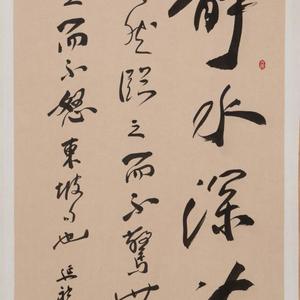 静水深
然臨之而不驚
之而不怒東坡句也